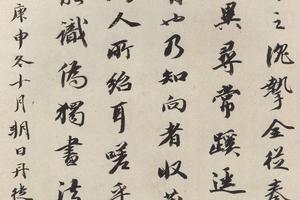 之沈摯全從秦
異尋常蹊逕
者也乃知向者收
人所紿耳嗟乎
識偽獨畫法
庚申冬十月朔日丹徒